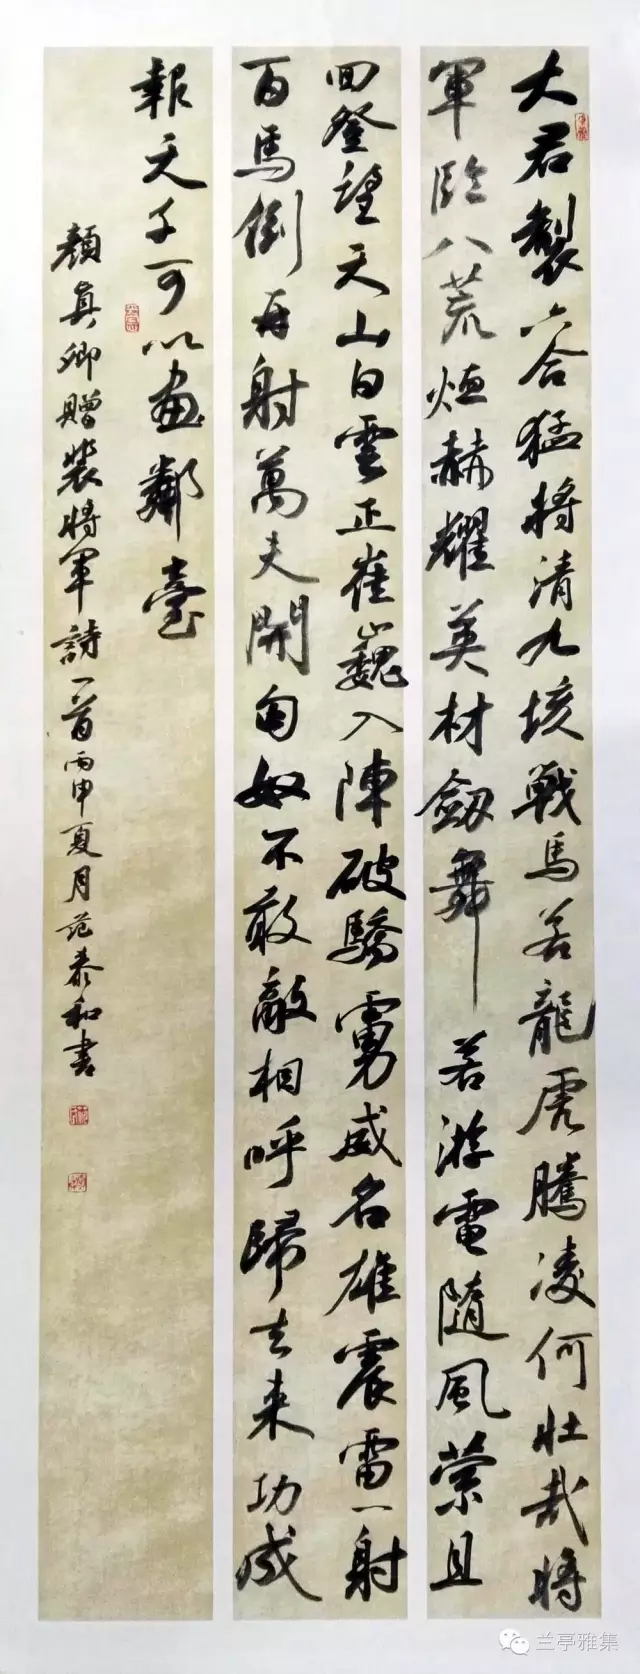 大君製六合猛将清九垓戰馬若龍虎騰凌何壯哉将
軍臨八荒烜赫耀英材劔舞若游電隨風縈且
回登望天山白雲正崔巍入陣破驕虜威名雄震雷一射
百馬倒再射萬夫開匈奴不敢敵相呼歸去来功成
報天子可以畫鄰臺
顏真卿贈裴将軍詩一首丙申夏月范泰和書
兰亭雅集